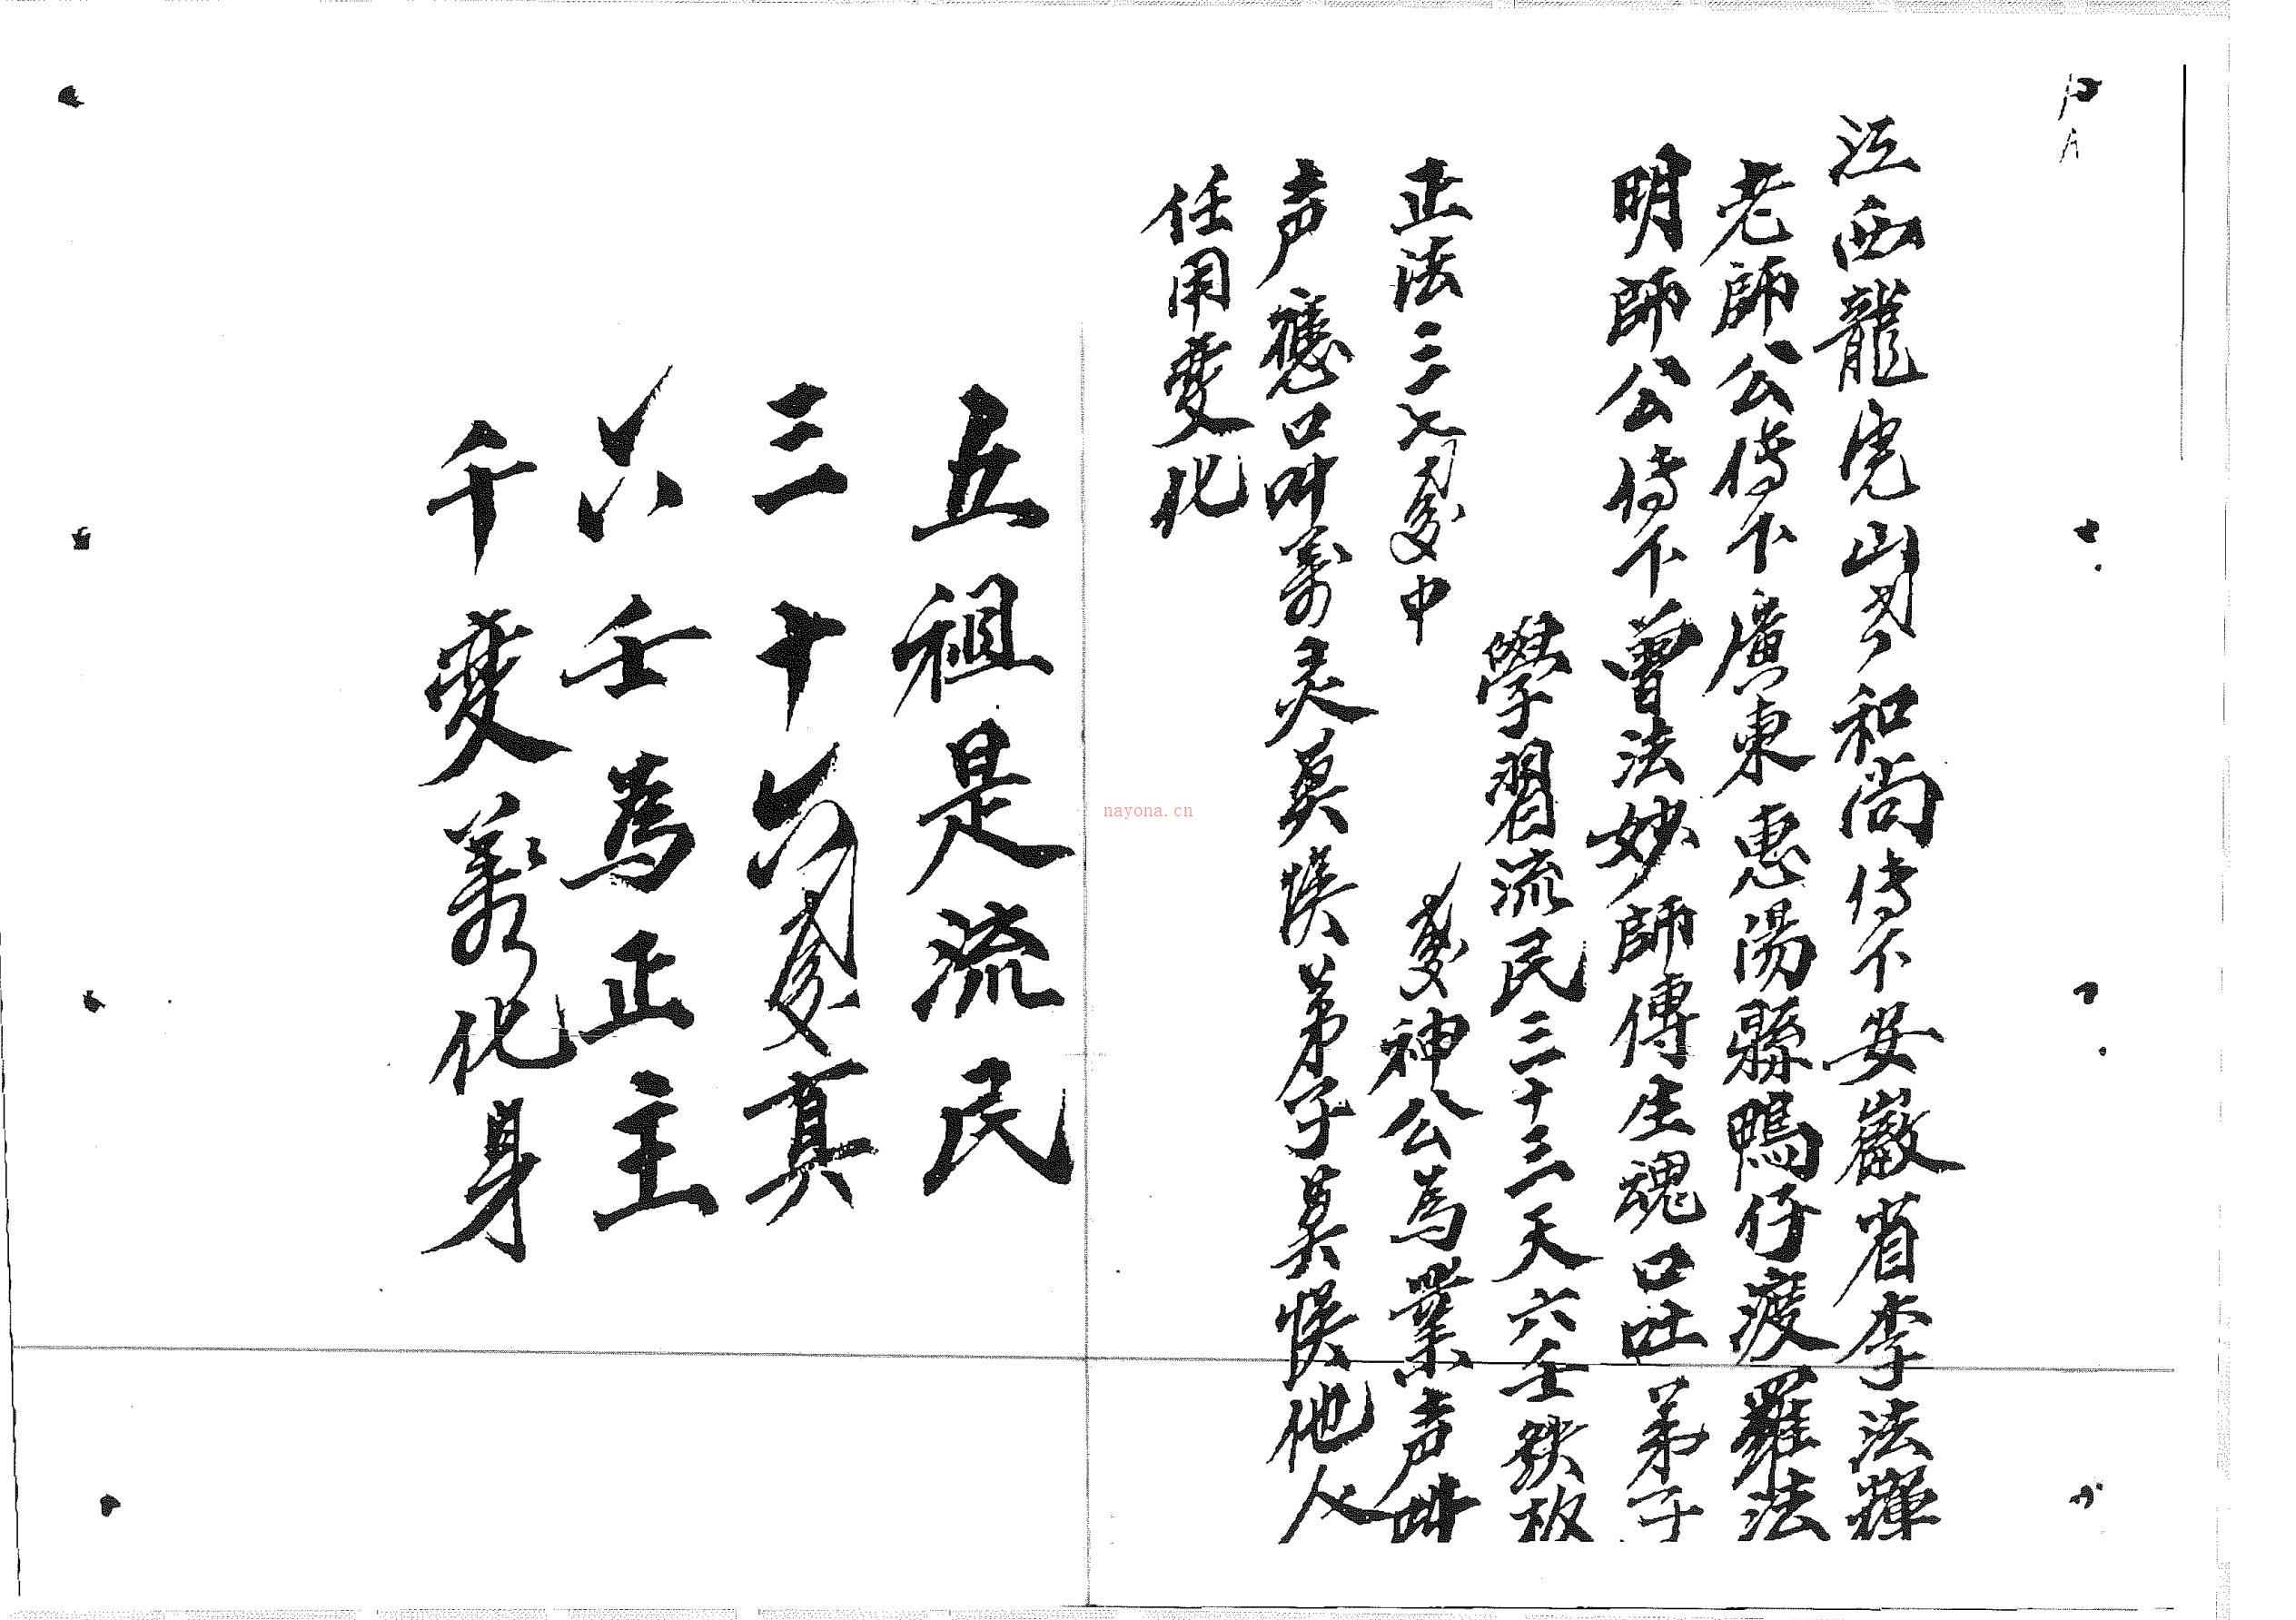 江西龍虎山 和尚传下安徽省李法輝
老師公傳下廣東惠陽縣鴨仔渡羅法
明師公传下曾法妙師傳生魂口吐弟子
學習流民三十三天六壬鉄板
正法三七 申 神公為業声叫
声應口叫萬灵莫悞弟子莫悞他人
任用变化
五祖是流民
三十六 真
六壬為正主
千变萬化身
nayona.cn